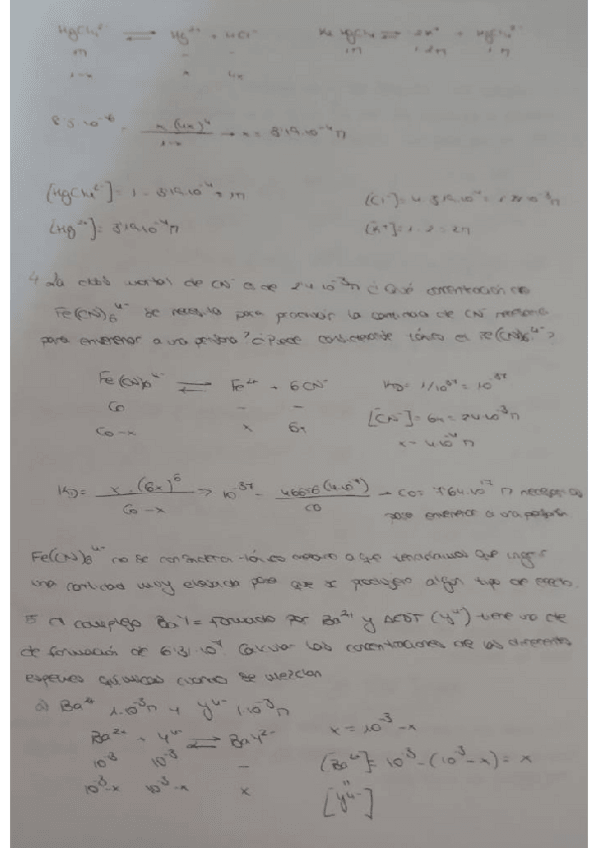 HgCl₄²⁻ ⇌ Hg²⁺ + 4Cl⁻ K₂HgCl₄ ⇌ 2K⁺ + HgCl₄²⁻
1M - - 1M 1·2M 1M
1-x x 4x
8'5·10⁻¹⁶ = x·(4x)⁴ / 1-x → x = 3'19·10⁻⁴M
[HgCl₄²⁻] = 1 - 3'19·10⁻⁴ ≈ 1M [Cl⁻] = 4·3'19·10⁻⁴ = 10⁻³M
[Hg²⁺] = 3'19·10⁻⁴M [K⁺] = 1·2 = 2M
4. La dosis mortal de CN⁻ es de 2'4·10⁻³M ¿Qué concentración de
Fe(CN)₆⁴⁻ se necesita para producir la cantidad de CN⁻ necesaria
para envenenar a una persona? ¿Puede considerarse tóxico el Fe(CN)₆⁴⁻?
Fe(CN)₆⁴⁻ ⇌ Fe²⁺ + 6CN⁻ KD = 1/10³⁷ = 10⁻³⁷
C₀ - - [CN⁻] = 6x = 2'4·10⁻³M
C₀-x x 6x x = 4·10⁻⁴M
KD = x·(6x)⁶ / C₀-x → 10⁻³⁷ = 46656(4·10⁻⁴)⁷ / C₀ → C₀ = 7'64·10¹⁷ M necesarios
para envenenar a una persona
Fe(CN)₆⁴⁻ no se considera tóxico debido a que tendríamos que ingerir
una cantidad muy elevada para que se produjera algún tipo de efecto.
5. El complejo BaY²⁻ formado por Ba²⁺ y AEDT (Y⁴⁻) tiene una cte
de formación de 6'31·10⁷. Calcular las concentraciones de las diferentes
especies químicas cuando se mezclan
a) Ba²⁺ 1·10⁻³M y Y⁴⁻ 1·10⁻³M
Ba²⁺ + Y⁴⁻ ⇌ BaY²⁻ x = 10⁻³ - x
10⁻³ 10⁻³ - [Ba²⁺] = 10⁻³ - (10⁻³ - x) = x
10⁻³-x 10⁻³-x x [Y⁴⁻]